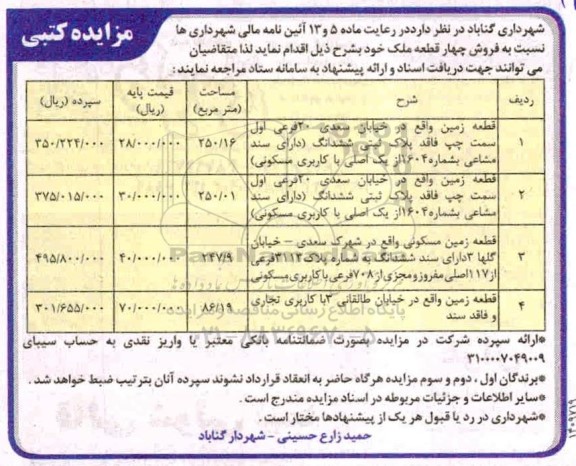 مزایده کتبی
شهرداری گناباد در نظر دارددر رعایت ماده ۵ و۱۳ آئین نامه مالی شهرداری ها
نسبت به فروش چهار قطعه ملک خود بشرح ذیل اقدام نماید لذا متقاضیان
می توانند جهت دریافت اسناد و ارائه پیشنهاد به سامانه ستاد مراجعه نمایند:
ردیف شرح مساحت (متر مربع) قیمت پایه (ریال) سپرده (ریال)
قطعه زمین واقع در خیابان سعدی ۲۰فرعی اول
۱ سمت چپ فاقد پلاک ثبتی ششدانگ (دارای سند ۲۵۰/۱۶ ۲۸/۰۰۰/۰۰۰ ۳۵۰/۲۲۴/۰۰۰
مشاعی بشماره۱۶۰۴از یک اصلی با کاربری مسکونی)
قطعه زمین واقع در خیابان سعدی ۲۰فرعی اول
۲ سمت چپ فاقد پلاک ثبتی ششدانگ (دارای سند ۲۵۰/۰۱ ۳۰/۰۰۰/۰۰۰ ۳۷۵/۰۱۵/۰۰۰
مشاعی بشماره۱۶۰۴از یک اصلی با کاربری مسکونی)
قطعه زمین مسکونی واقع در شهرک سعدی – خیابان
۳ گلها ۳دارای سند ششدانگ به شماره پلاک۳۱۱۳فرعی ۲۴۷/۹ ۴۰/۰۰۰/۰۰۰ ۴۹۵/۸۰۰/۰۰۰
از۱۱۷اصلی مفروز و مجزی از۷۰۸فرعی با کاربری مسکونی
۴ قطعه زمین واقع در خیابان طالقانی ۳با کاربری تجاری ۸۶/۱۹ ۷۰/۰۰۰/۰۰۰ ۳۰۱/۶۵۵/۰۰۰
و فاقد سند
*ارائه سپرده شرکت در مزایده بصورت ضمانتنامه بانکی معتبر یا واریز نقدی به حساب سیبای
۳۱۰۰۰۰۷۰۴۹۰۰۹
*برندگان اول ، دوم و سوم مزایده هرگاه حاضر به انعقاد قرارداد نشوند سپرده آنان بترتیب ضبط خواهد شد .
*سایر اطلاعات و جزئیات مربوطه در اسناد مزایده مندرج است .
*شهرداری در رد یا قبول هر یک از پیشنهادها مختار است .
حمید زارع حسینی – شهردار گناباد